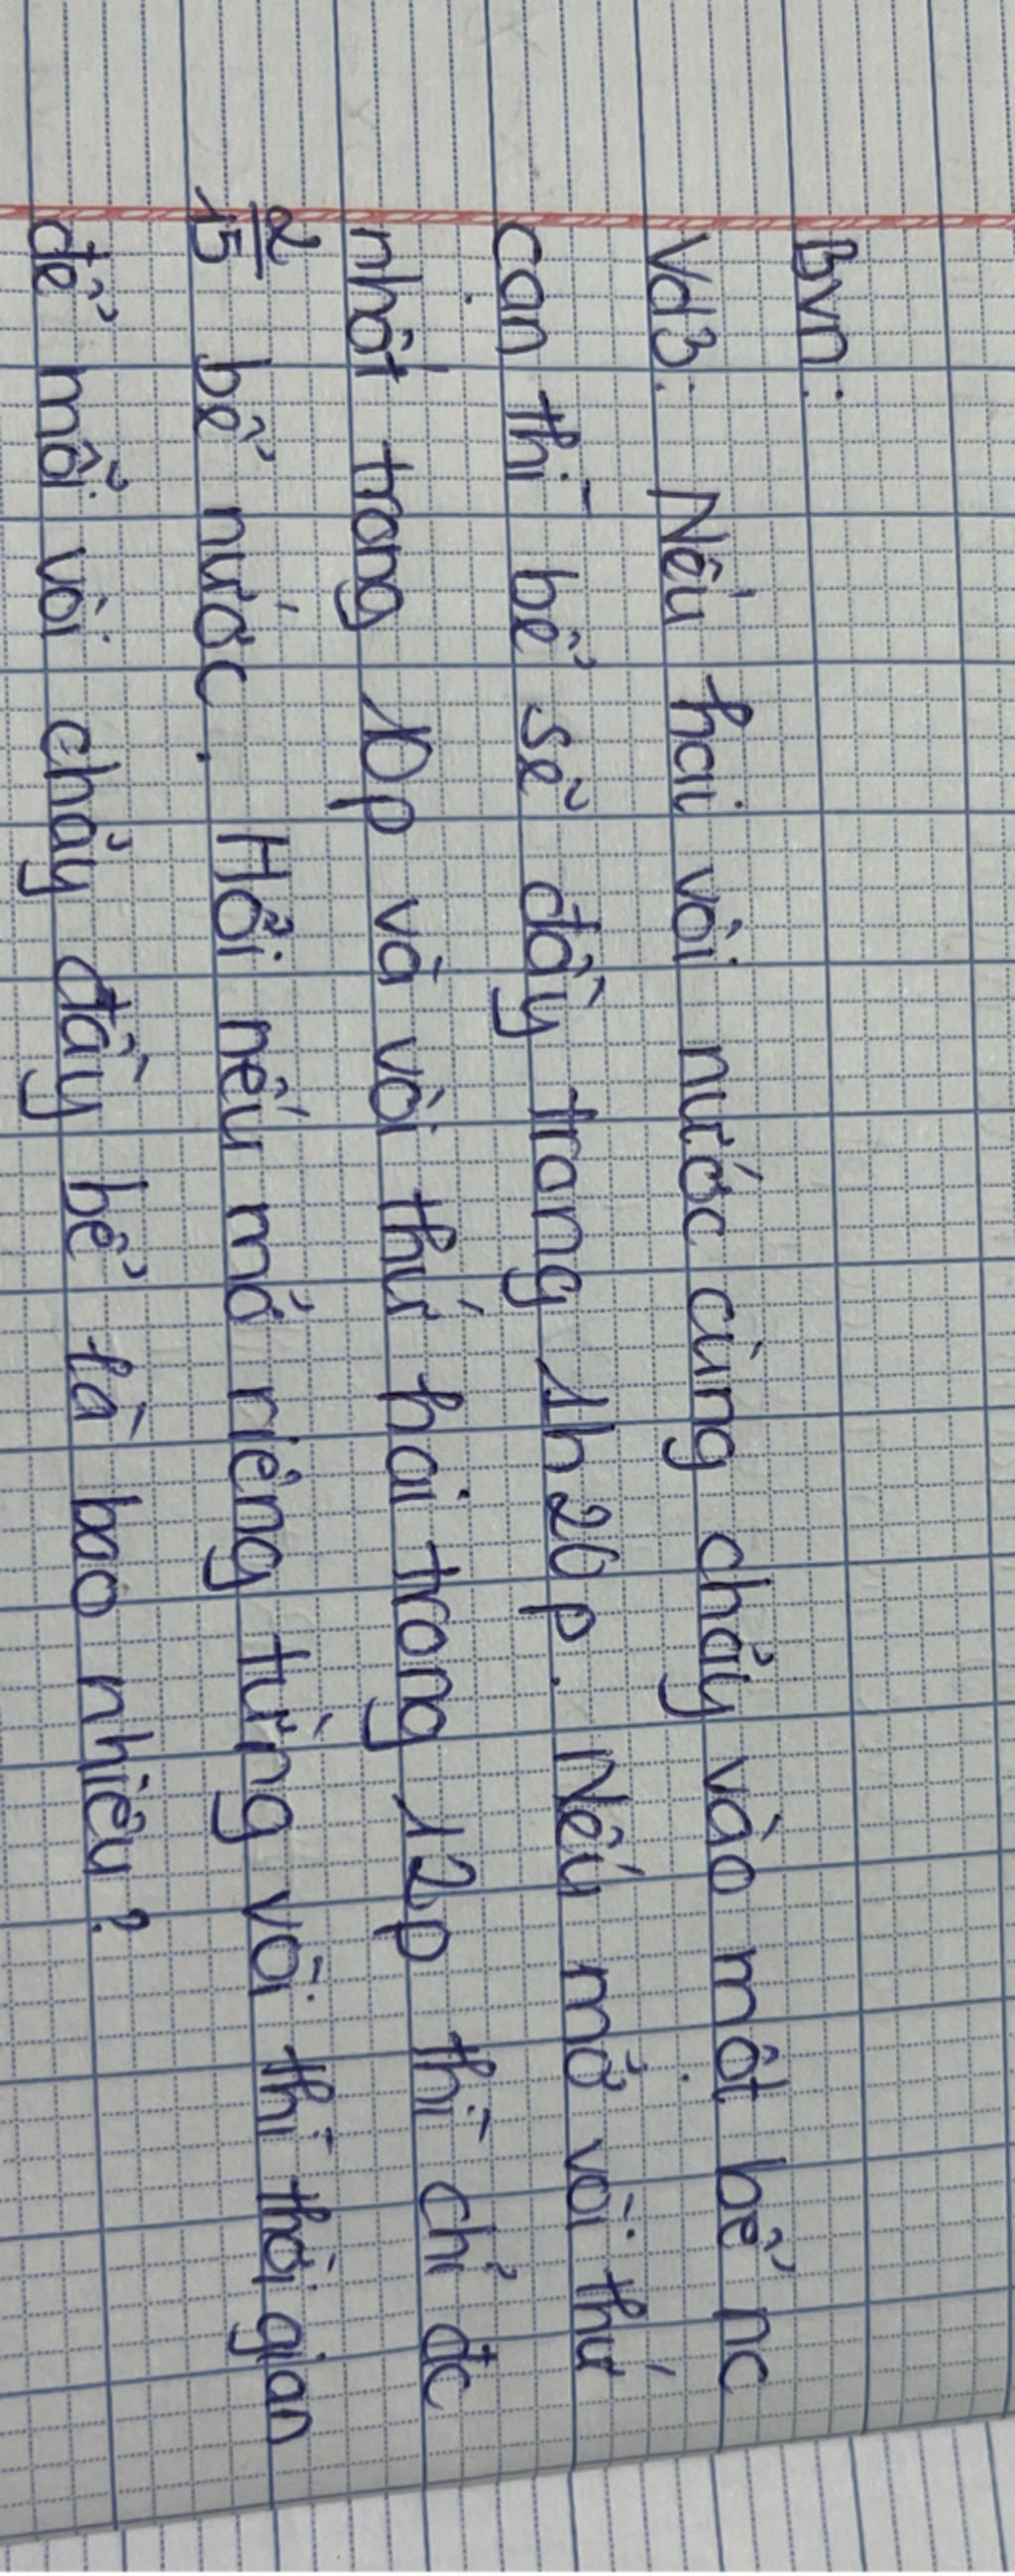 BVN:
Vd3: Nếu hai vòi nước cùng chảy vào một bể nc
cạn thì bể sẽ đầy trong 1h20p. Nếu mở vòi thứ
nhất trong 10p và vòi thứ hai trong 12p thì chỉ đc
2/15 bể nước. Hỏi nếu mở riêng từng vòi thì thời gian
để mỗi vòi chảy đầy bể là bao nhiêu?